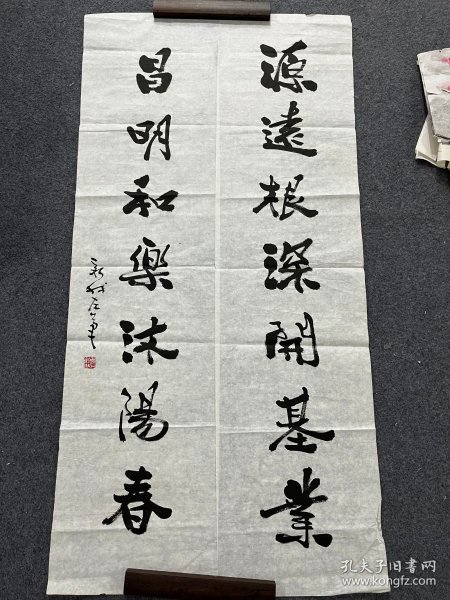 源遠根深開基業
昌明和樂沐陽春
孔夫子旧书网
www.kongfz.com